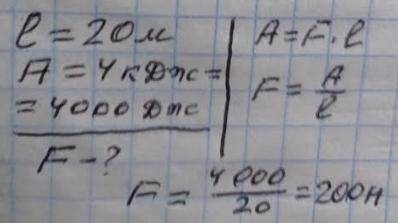 l = 20м
A = 4кДж =
= 4000 Дж
F - ?
A = F · l
F = A/l
F = 4000/20 = 200н